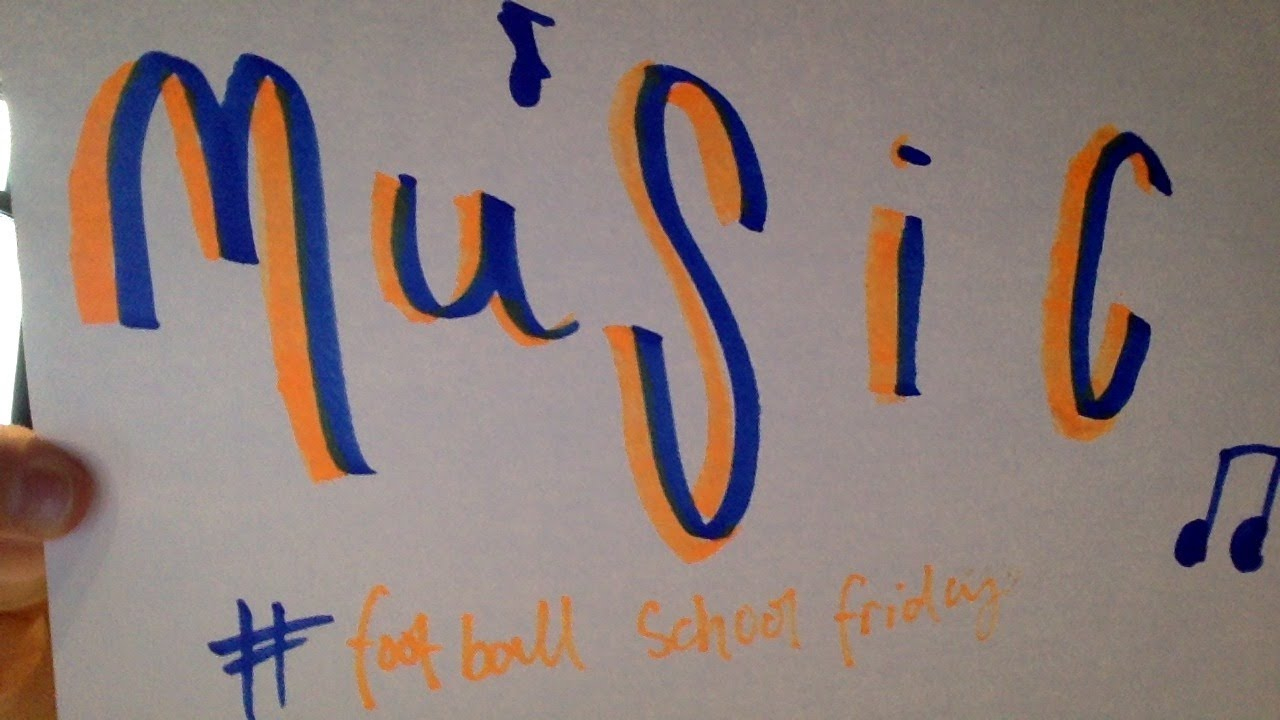 MuSic
# football school friday